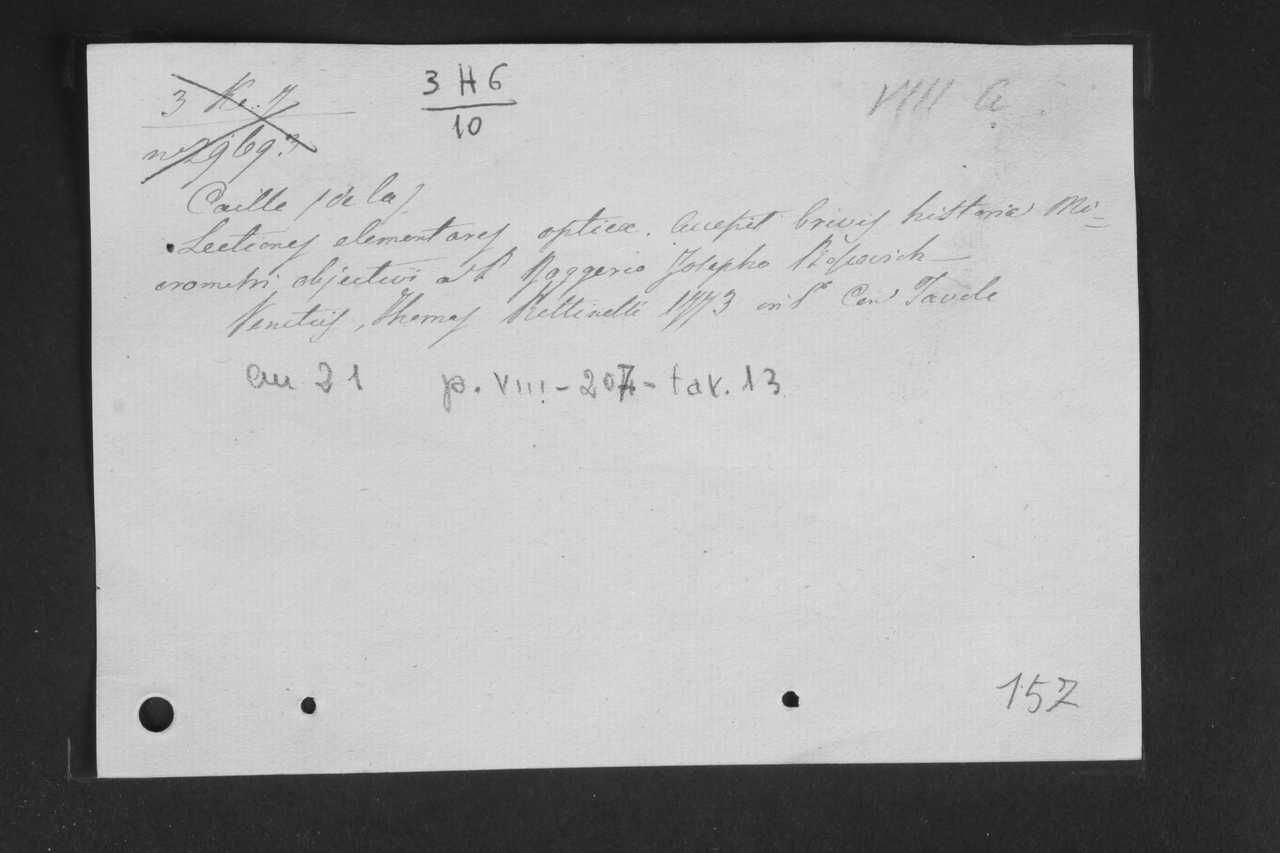 3 H 6
10
VIII G
Caille (de la)
Lectiones elementares opticæ. Accepit brivis historia Mi=
crometri objectivi a P Roggerio Josepho Boscovich —
Venetiis, Thomas Bettinelli 1773 in 8º Con Tavole
cm 21 p. VIII - 207 - tav. 13
157